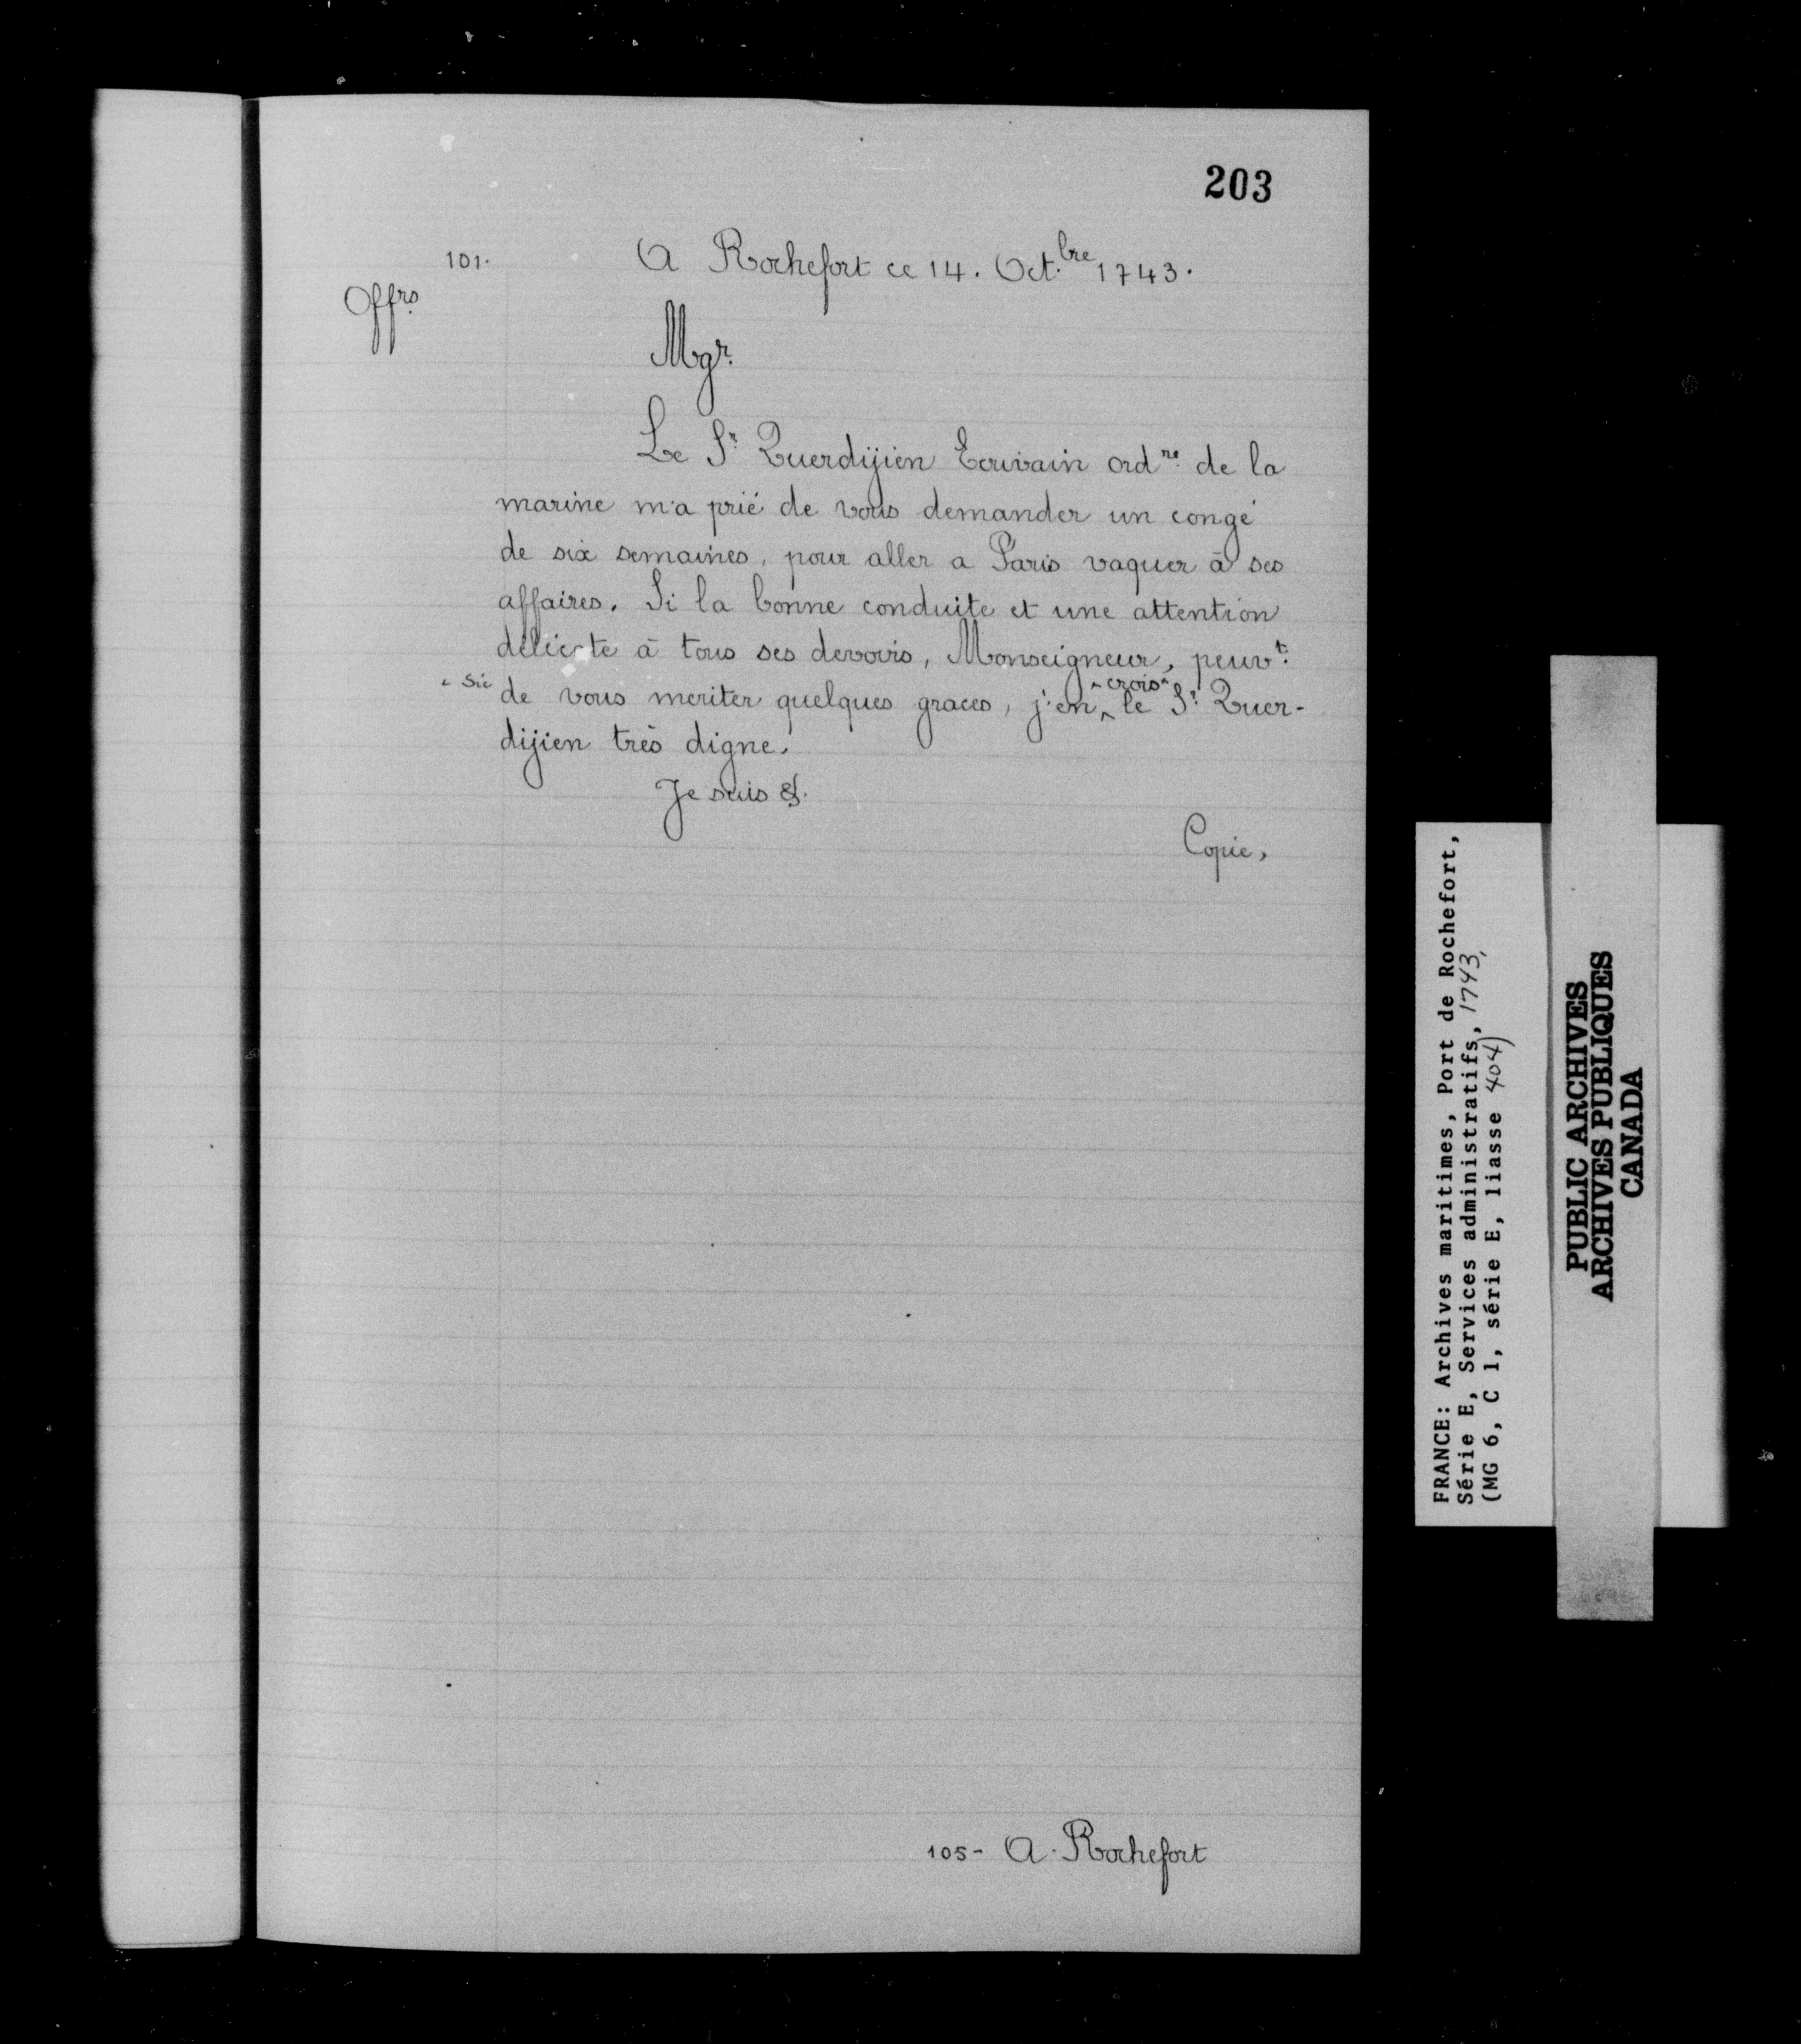 203
101.
A Rochefort ce 14. Oct.bre 1743.
Offrs
Mgr.
Le Sr. Querdijien Ecrivain ordre. de la
marine m'a prié de vous demander un congé
de six semaines, pour aller a Paris vaquer à ses
affaires. Si la bonne conduite et une attention
délicate à tous ses devoirs, Monseigneur, peuvt.
sic de vous meriter quelques graces, j'en crois le Sr. Quer-
dijien très digne.
Je suis &.
Copie,
105- A. Rochefort
FRANCE: Archives maritimes, Port de Rochefort,
Série E, Services administratifs, 1743,
(MG 6, C 1, série E, liasse 404)
PUBLIC ARCHIVES
ARCHIVES PUBLIQUES
CANADA